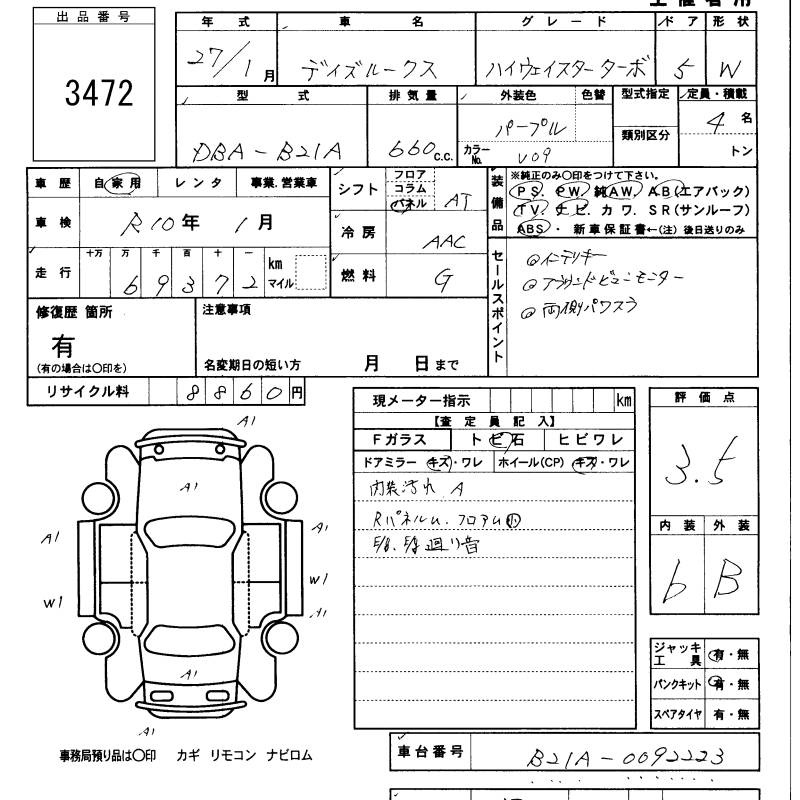 出品番号
3472
年式 車名 グレード ドア 形状
27/1月 デイズルークス ハイウェイスターターボ 5 W
型式 排気量 外装色 色替 型式指定 定員・積載
DBA-B21A 660c.c. パープル 類別区分 4名
カラーNo. V09 トン
車歴 自家用 レンタ 事業.営業車
車検 R10年 1月
走行 十万 万 千 百 十 一
69372 km マイル
シフト フロア コラム パネル AT
冷房 AAC
燃料 G
装備品 ※純正のみ○印をつけて下さい。
PS. PW. 純AW. AB(エアバック)
TV. ナビ. カワ. SR(サンルーフ)
ABS・ 新車保証書←(注) 後日送りのみ
セールスポイント
インテリキー
アラウンドビューモニター
両側パワスラ
修復歴 箇所
有
(有の場合は○印を)
注意事項
名変期日の短い方 月 日まで
リサイクル料 8860円
現メーター指示 km
【査定員記入】
Fガラス トビ石 ヒビワレ
ドアミラー キズ・ワレ ホイール(CP) キズ・ワレ
内装汚れ A
廻り音
評価点
3.5
内装 外装
b B
A1
A1
A1 A1
W1 W1
A1
A1
A1
ジャッキ工具 有・無
パンクキット 有・無
スペアタイヤ 有・無
事務局預り品は○印 カギ リモコン ナビロム
車台番号 B21A-0092223